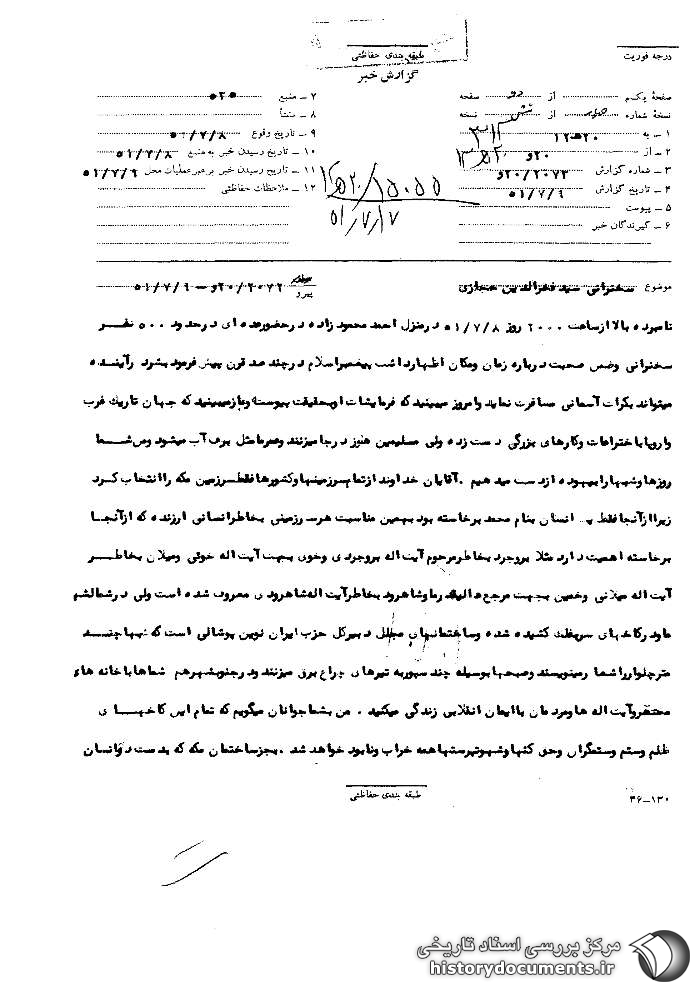 درجه فوریت
طبقه بندی حفاظتی
گزارش خبر
صفحهٔ یکم از دو صفحه
نسخهٔ شماره از نسخه
۱ – به ۳۱۲
۲ – از ۲۰و
۳ – شماره گزارش ۲۰/۲۰۷۲و
۴ – تاریخ گزارش ۵۱/۷/۹
۵ – پیوست
۶ – گیرندگان خبر
۷ – منبع
۸ – منشأ
۹ – تاریخ وقوع ۵۱/۷/۸
۱۰ – تاریخ رسیدن خبر به منبع ۵۱/۷/۸
۱۱ – تاریخ رسیدن خبر به رهبر عملیات محل ۵۱/۷/۹
۱۲ – ملاحظات حفاظتی
۵۱/۷/۱۷
موضوع سخنرانی سید فخرالدین حجازی
پیرو ۲۰/۲۰۷۲و – ۵۱/۷/۹
نامبرده بالا از ساعت ۲۰۰۰ روز ۵۱/۷/۸ در منزل احمد محمود زاده در حضور عده ای در حدود ۵۰۰ نفر
سخنرانی وضمن صحبت درباره زمان ومکان اظهارداشت پیغمبراسلام در چند صد قرن پیش فرمود بشرد رآینده
میتواند بکرات آسمانی مسافرت نماید وامروز میبینید که فرمایشات اوبحقیقت پیوسته وبازمیبینید که جهان تاریك غرب
واروپا با ختراعات وکارهای بزرگی دست زده ولی مسلمین هنوز درجا میزنند وعمرما مثل برف آب میشود ومن شما
روزها وشبها را بیهوده ازدست مید هیم . آقایان خداوند ازتمام سرزمینها وکشورها فقط سرزمین مکه را انتخاب کرد
زیرا از آنجا فقط یک انسان بنام محمد برخاسته بود بهمین مناسبت هر سرزمینی بخاطر انسانی ارزنده که از آنجا
برخاسته اهمیت دارد مثلا بروجرد بخاطر مرحوم آیت اله بروجردی وخوی بجهت آیت اله خوئی ومیلان بخاطر
آیت اله میلانی وخمین بجهت مرجع عالیقدرما وشاهرود بخاطر آیت اله شاهرودی معروف شده است ولی در شمال شهر
ما ودر کاخهای سربفلك کشیده شده وساختمانهای مجلل دبیرکل حزب ایران نوین پوشالی است که شبها چند
متر چلوار را شما رمینویسند وصبحها بوسیله چند سپوربه تیرهای چراغ برق میزنند ودرجنوب شهرهم شماها با خانه های
محقر وآیت اله ها ومردمان با ایمان انقلابی زندگی میکنید . من بشما جوانان میگویم که تمام این کاخهای
ظلم وستم وستمگران وحق کشها وشهوتپرستها همه خراب ونابود خواهد شد . بجز ساختمان مکه که بدست دوانسان
طبقه بندی حفاظتی
۳۶–۱۳۰
مرکز بررسی اسناد تاریخی
historydocuments.ir